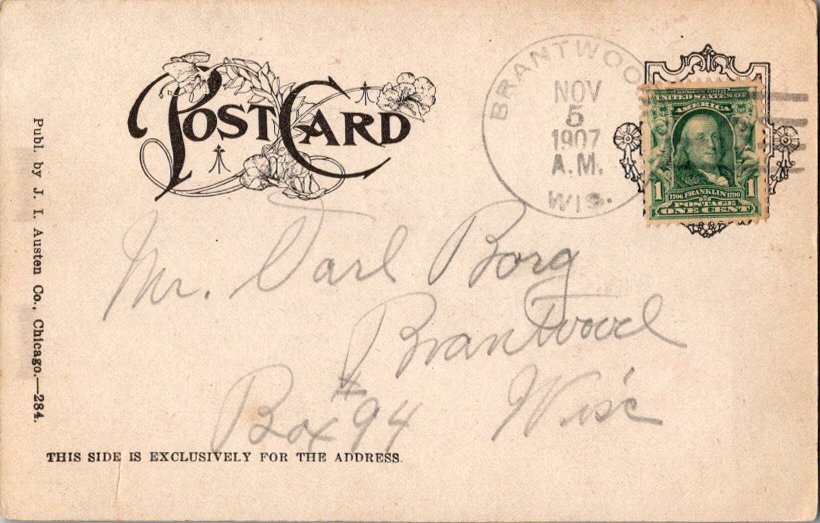 POST CARD
BRANTWOO
NOV
5
1907
A.M.
WIS.
UNITED STATES OF
AMERICA
1 1706 FRANKLIN 1790 1
POSTAGE
ONE CENT
Mr. Carl Borg
Brantwood
Box #94 Wis'c
Publ. by J. I. Austen Co., Chicago.—284.
THIS SIDE IS EXCLUSIVELY FOR THE ADDRESS.